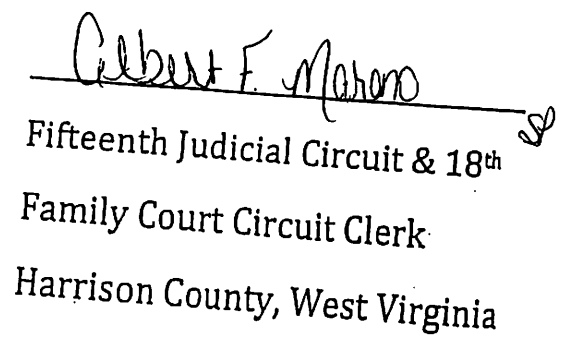 Albert F. Marano
Fifteenth Judicial Circuit & 18th
Family Court Circuit Clerk
Harrison County, West Virginia